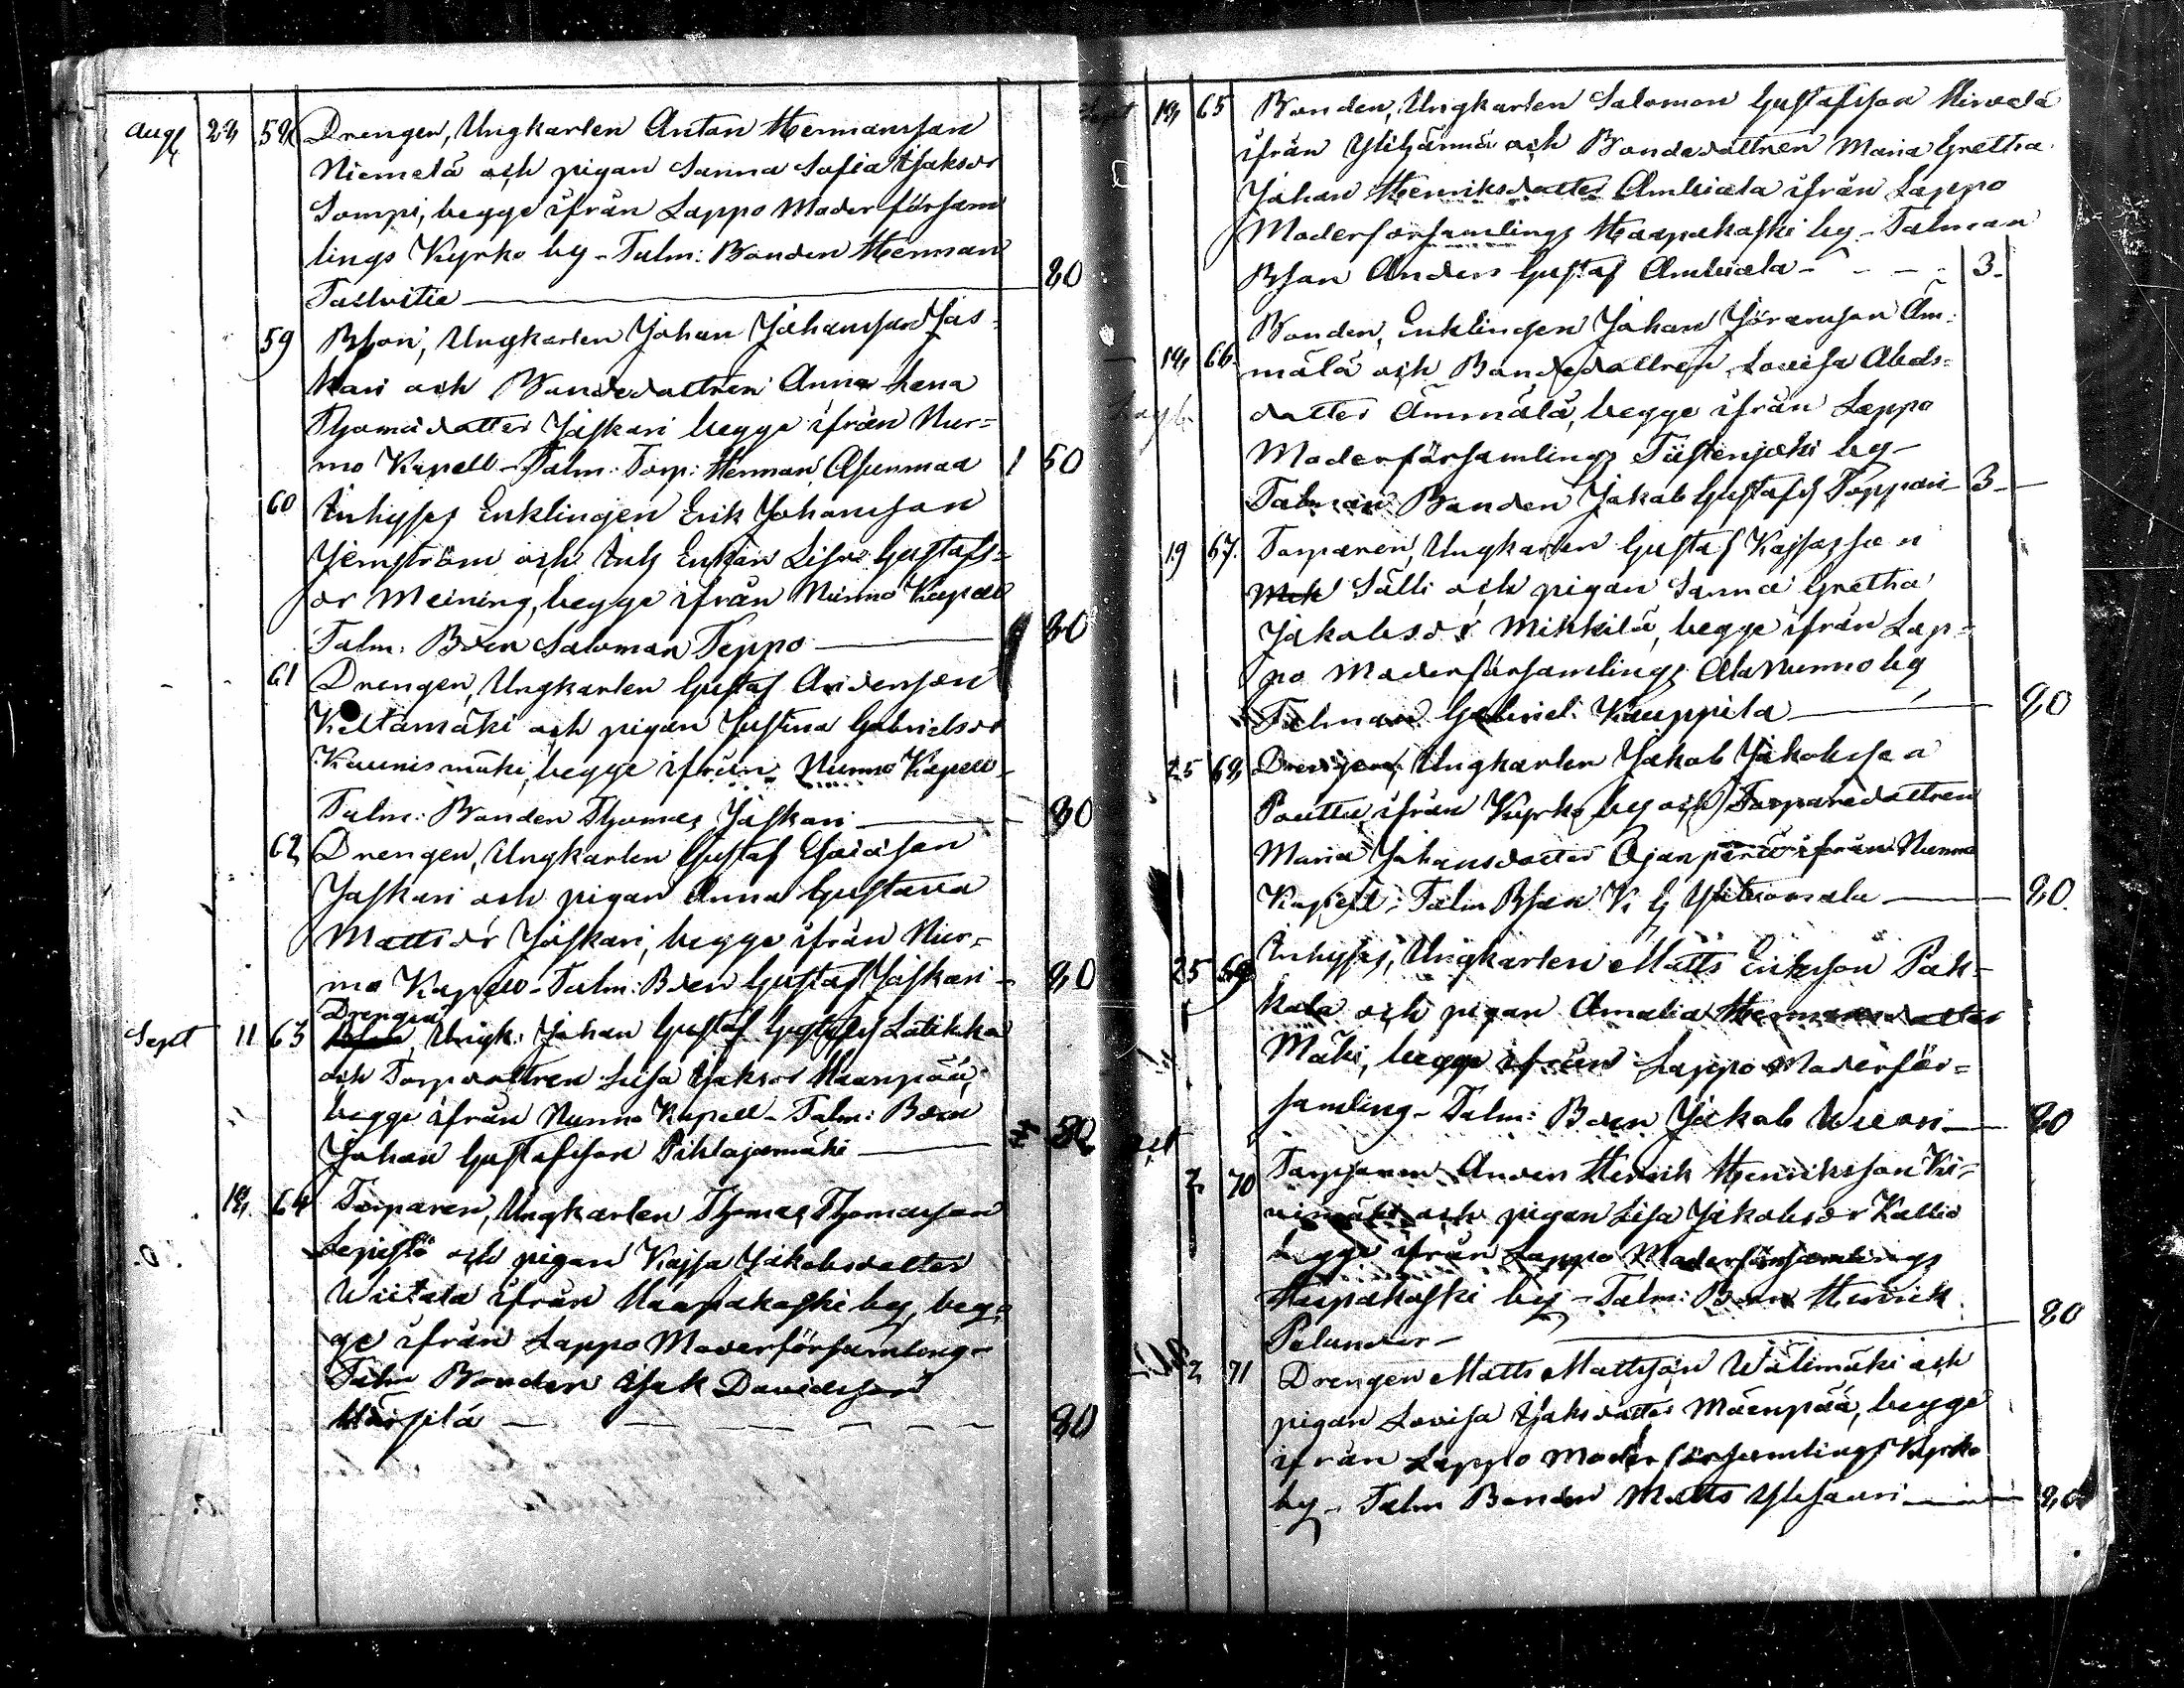 Aug 28 58 Drengen, Ungkarlen Anton Hermansson
Niemelä och pigan Sanna Sofia Isaksdr
Sompi, begge ifrån Lappo Moderförsam
lings Kyrko by - Talm: Bonden Herman
Talvitie — 80
59 Bson, Ungkarlen Johan Johansson Jäs-
kari och Bondedottren Anna Lena
Thomasdotter Jäskari begge ifrån Nur=
mo Kapell - Talm: Torp: Herman Asunmaa 1 50
60 Inhyses Enklingen Erik Johansson
Jernström och Inh Enkan Lisa Gustafs=
dr Meining, begge ifrån Nurmo Kapell
Talm: Bden Salomon Teppo — 80
61 Drengen, Ungkarlen Gustaf Andersson
Keltamäki och pigan Justina Gabrielsdr
Kaunismäki, begge ifrån Nurmo Kapell -
Talm: Bonden Thomas Jäskari — 80
62 Drengen, Ungkarlen Gustaf Esaiasson
Jäskari och pigan Anna Gustava
Mattsdr Jäskari, begge ifrån Nur=
mo Kapell - Talm: Bden Gustaf Jäskari - 80
Drengen
Sept 11 63 Ungk: Johan Gustaf Gustafss Latikka
och Torpdottren Lisa Isaksdr Haanpää,
begge ifrån Nurmo Kapell - Talm: Bden
Johan Gustafsson Pihlajamäki —
18 64 Torparen, Ungkarlen Thomas Thomasson
Lepistö och pigan Kajsa Jakobsdotter
Wiitala ifrån Haapakoski by, beg=
ge ifrån Lappo Moderförsamling -
Talm Bonden Isak Davidsson
Härsilä — 80
Sept 18 65 Bonden, Ungkarlen Salomon Gustafsson Hirvelä
ifrån Ylihärmä och Bondedottren Maria Gretha
Johan Henriksdotter Ambiala ifrån Lappo
Moderförsamlings Haapakoski by - Talman
Bson Anders Gustaf Ambiala - 3 -
Bonden, Enklingen Johan Jöransson Äm-
18 66 mälä och Bondedottren Lovisa Abels-
dotter Ämmälä, begge ifrån Lappo
Moderförsamlings Tiistenjoki by -
Talman Bonden Jakob Gustafss Toppari - 3 -
19 67. Torparen, Ungkarlen Gustaf Kajsasson
Mik Sälli och pigan Sanna Gretha
Jakobsdr Mikkilä, begge ifrån Lap=
po Moderförsamlings Ala Nurmo by
Talman Gabriel Kauppila — 80
25 68 Drengen, Ungkarlen Jakob Jakobsson
Pouttu ifrån Kyrko by och Torparedottren
Maria Johansdotter Ojanperä ifrån Nurmo
Kapell - Talm Bson K. G — 80.
25 69 Inhyses, Ungkarlen Matts Eriksson Pak=
kala och pigan Amalia Hermansdotter
Mäki, begge ifrån Lappo Moderför=
samling - Talm: Bden Jakob Wuori — 80
Oct
2 70 Torparen Anders Henrik Henriksson Ki-
vimäki och pigan Lisa Jakobsdr Kallio
begge ifrån Lappo Moderförsamlings
Haapakoski by - Talm: Bden Henrik
Pelander — 80
2 71 Drengen Matts Mattsson Wälimäki och
pigan Lovisa Isaksdotter Mäenpää, begge
ifrån Lappo Moderförsamlings Kyrko
by - Talm Bonden Matts Ylisaari — 80